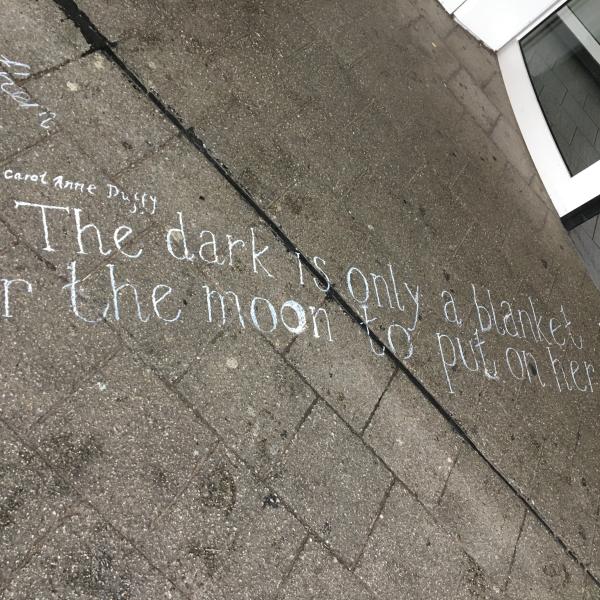 Carol Anne Duffy
The dark is only a blanket
r the moon to put on her